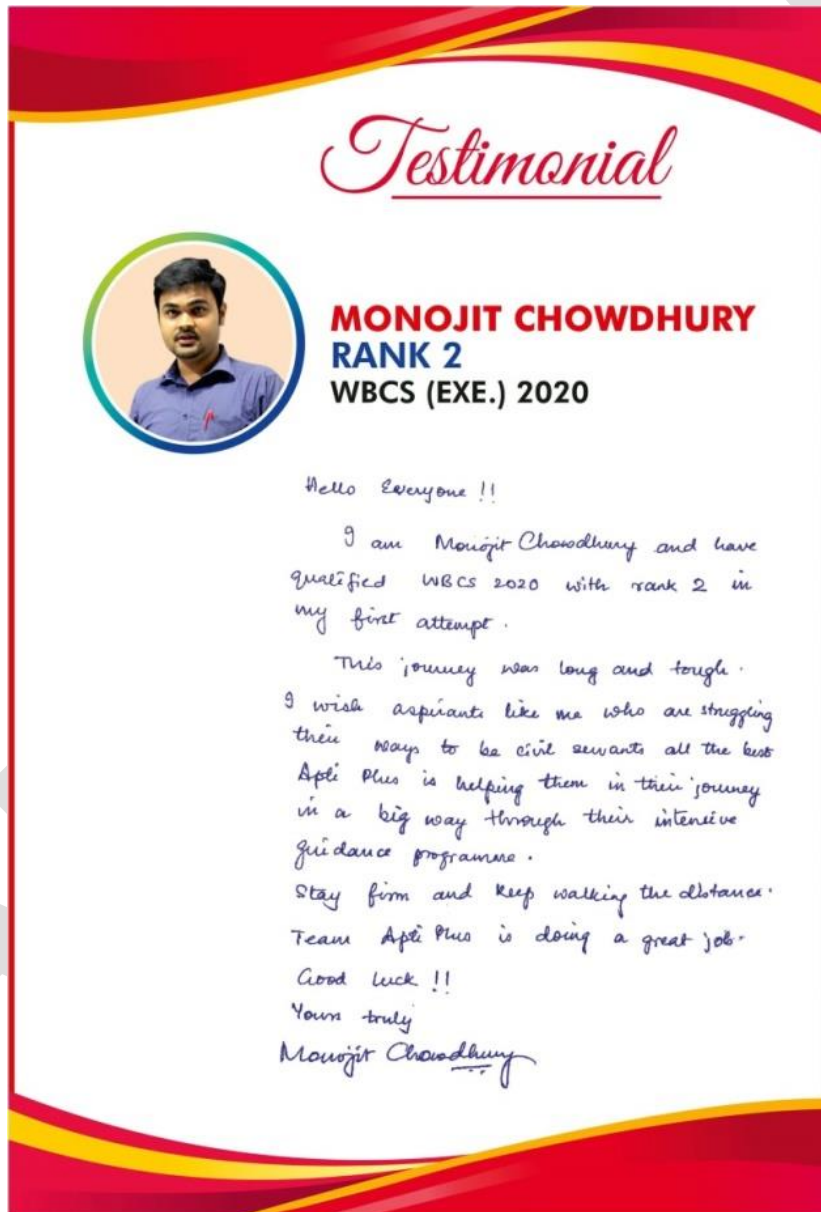 Testimonial
MONOJIT CHOWDHURY
RANK 2
WBCS (EXE.) 2020
Hello Everyone !!
I am Monojit Chowdhury and have
qualified WBCS 2020 with rank 2 in
my first attempt.
This journey was long and tough.
I wish aspirants like me who are struggling
their ways to be civil servants all the best
Apti Plus is helping them in their journey
in a big way through their intensive
guidance programme.
Stay firm and keep walking the distance.
Team Apti Plus is doing a great job.
Good luck !!
Yours truly
Monojit Chowdhury